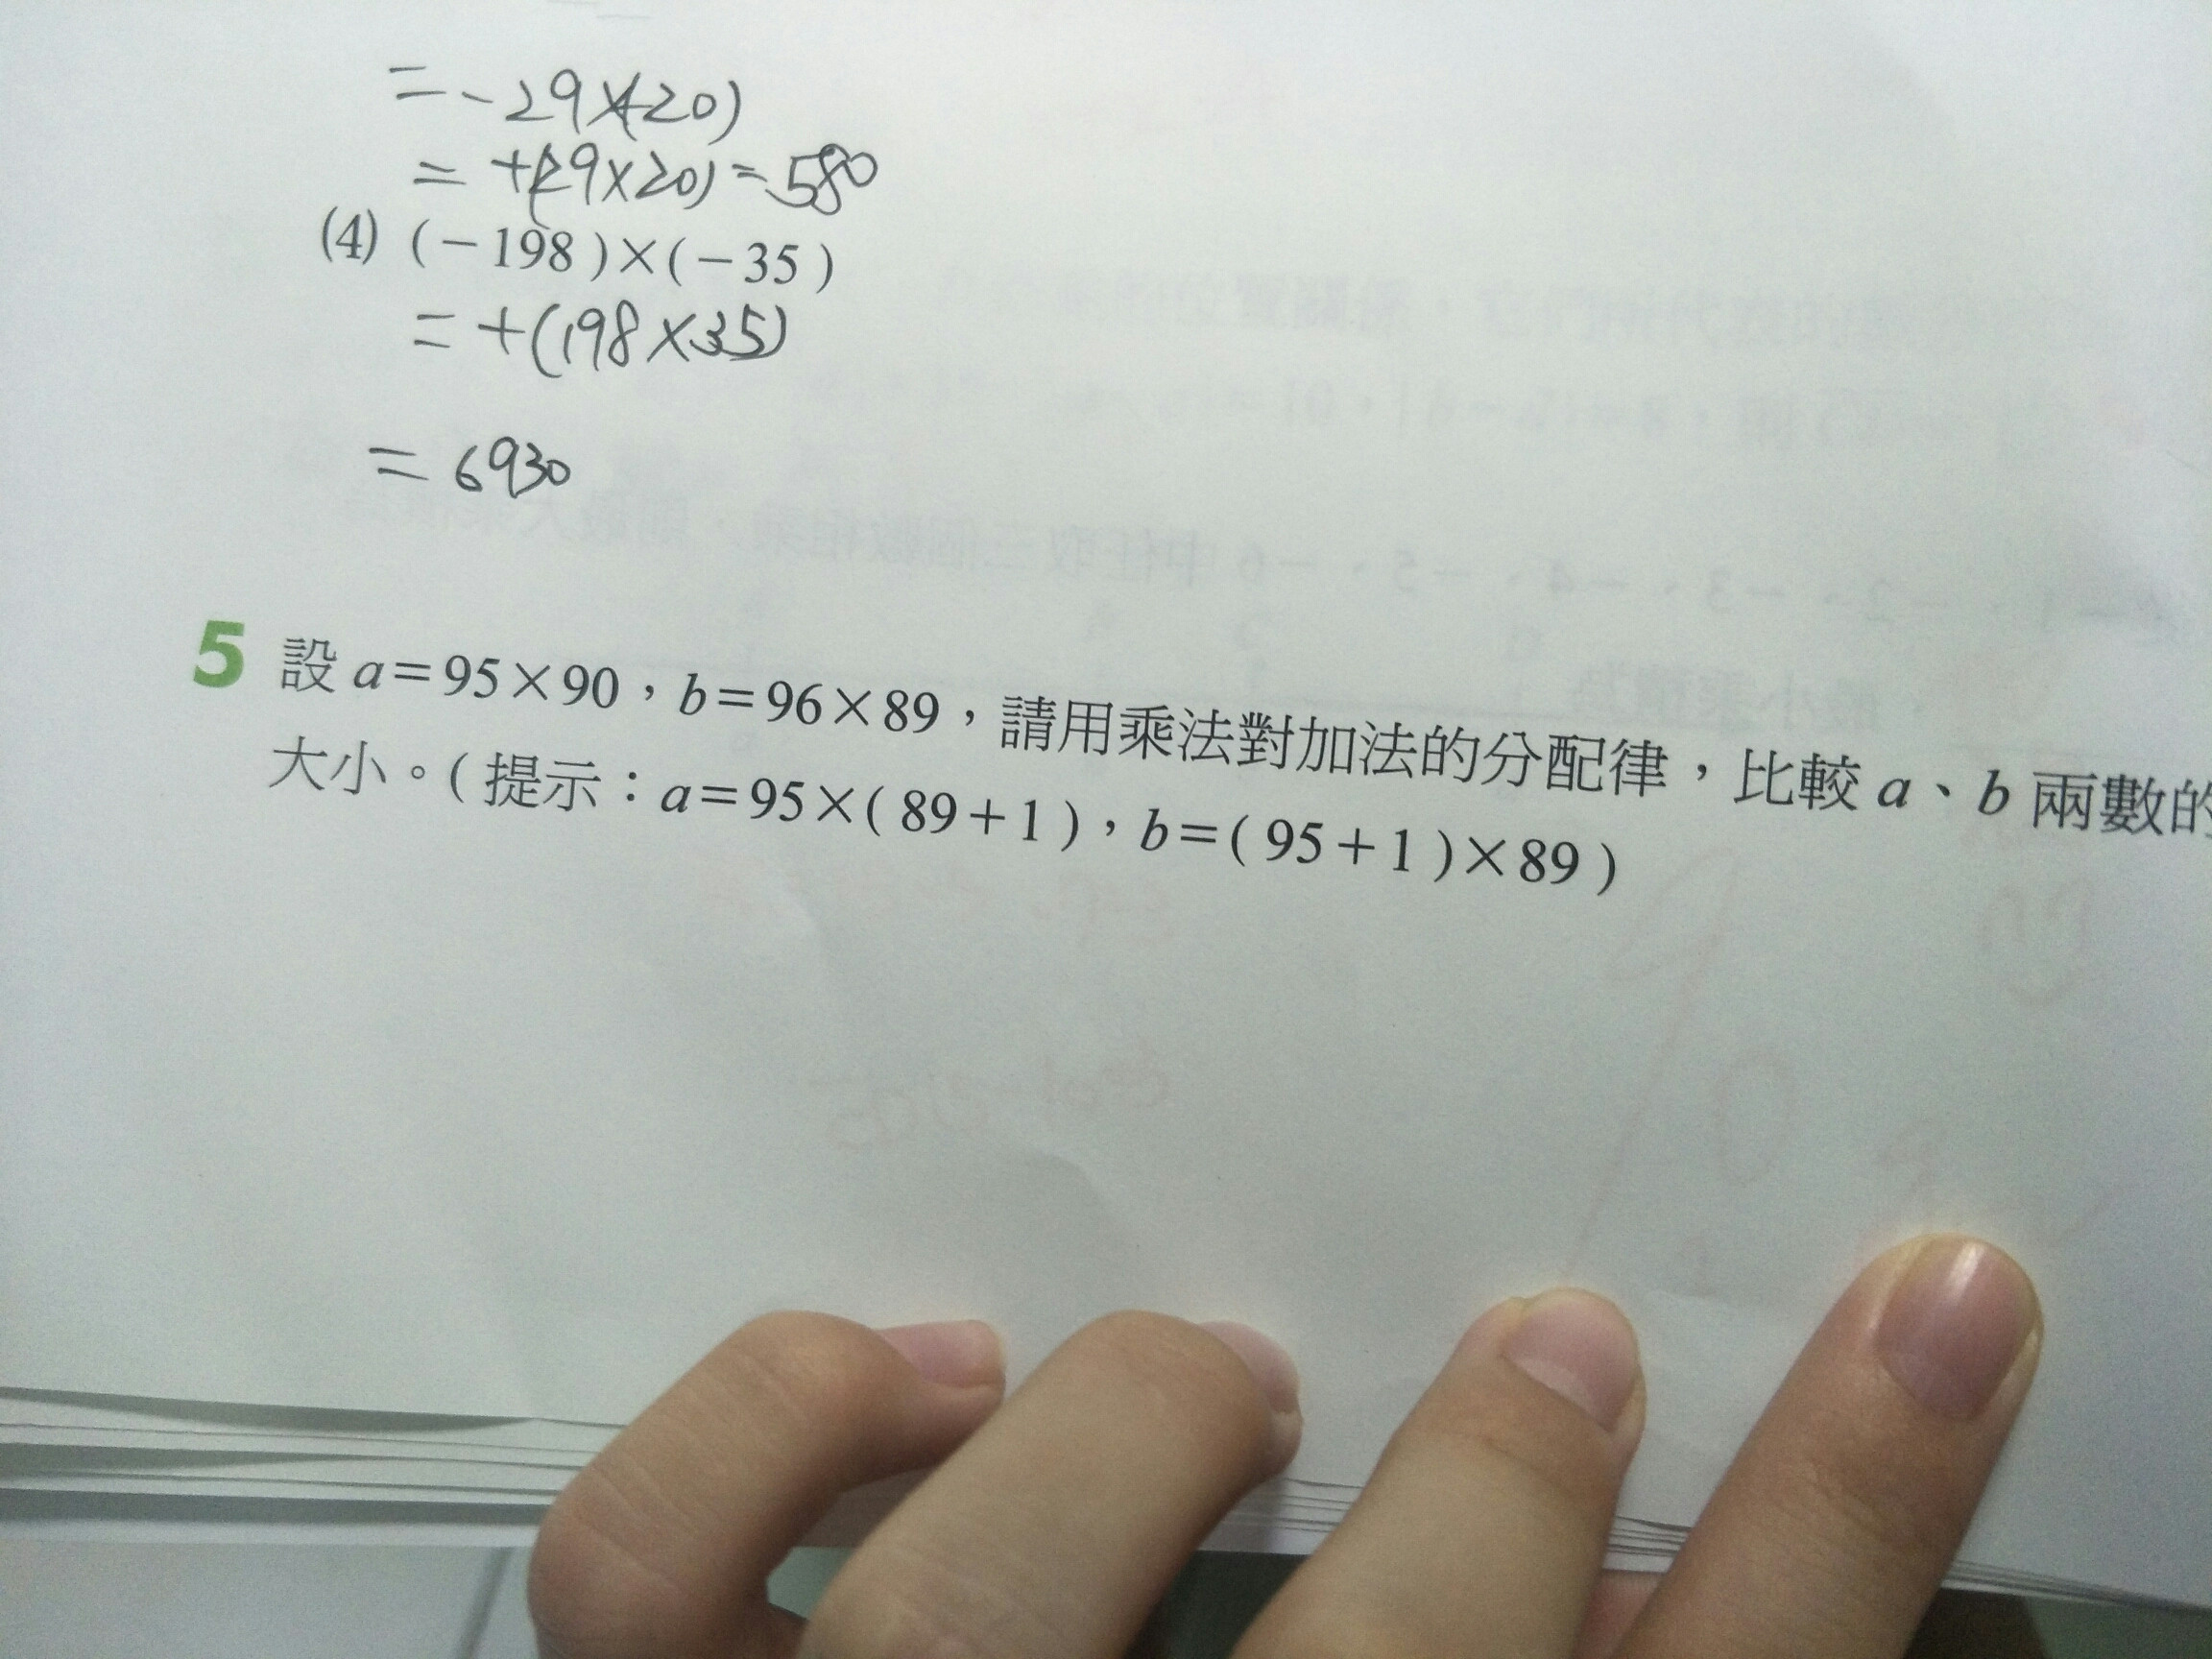 = -29×(-20)
= +(29×20) = 580
(4) (-198)×(-35)
= +(198×35)
= 6930
5 設 a=95×90，b=96×89，請用乘法對加法的分配律，比較 a、b 兩數的
大小。( 提示：a=95×( 89+1 )，b=( 95+1 )×89 )